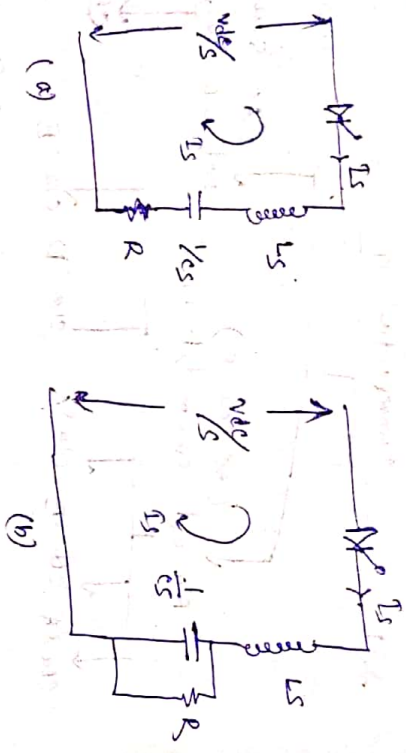 Vdc/S
Is
Is
LS
1/CS
R
(a)
Vdc/S
Is
Is
LS
1/CS
R
(b)